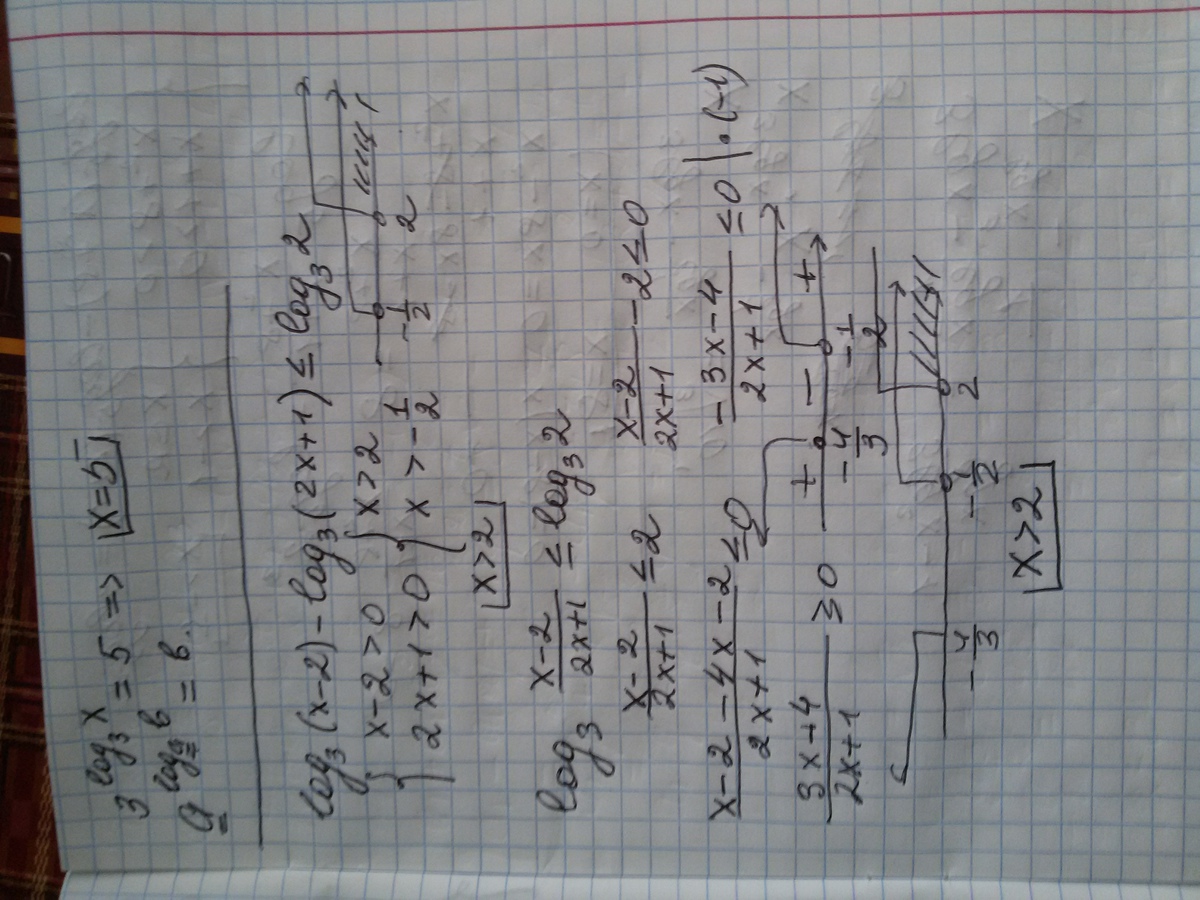 3^{log_3 x} = 5 => x=5
a^{log_a b} = b.
log_3(x-2) - log_3(2x+1) ≤ log_3 2
{ x-2>0 { x>2
{ 2x+1>0 { x>-1/2
-1/2 2
x>2
log_3 (x-2)/(2x+1) ≤ log_3 2
(x-2)/(2x+1) ≤ 2 (x-2)/(2x+1) - 2 ≤ 0
(x-2-4x-2)/(2x+1) ≤ 0 (-3x-4)/(2x+1) ≤ 0 | · (-1)
(3x+4)/(2x+1) ≥ 0 + - +
-4/3 -1/2
-4/3 -1/2 2
x>2